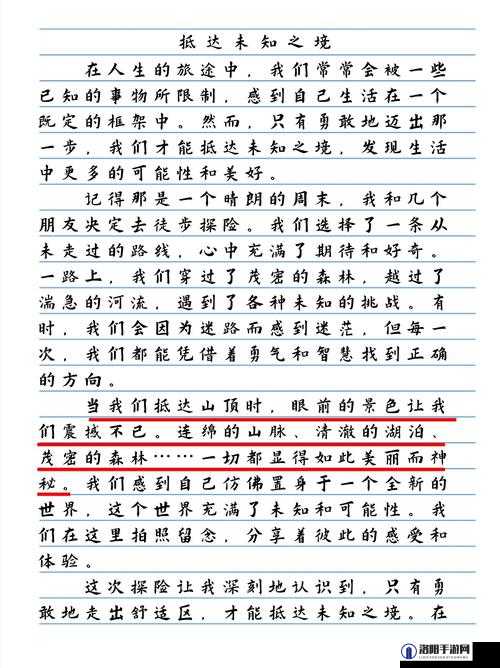 抵达未知之境
在人生的旅途中，我们常常会被一些
已知的事物所限制，感到自己生活在一个
既定的框架中。然而，只有勇敢地迈出那
一步，我们才能抵达未知之境，发现生活
中更多的可能性和美好。
记得那是一个晴朗的周末，我和几个
朋友决定去徒步探险。我们选择了一条从
未走过的路线，心中充满了期待和好奇。
一路上，我们穿过了茂密的森林，越过了
湍急的河流，遇到了各种未知的挑战。有
时，我们会因为迷路而感到迷茫，但每一
次，我们都能凭借着勇气和智慧找到正确
的方向。
当我们抵达山顶时，眼前的景色让我
们震撼不已。连绵的山脉、清澈的湖泊、
茂密的森林……一切都显得如此美丽而神
秘。我们感到自己仿佛置身于一个全新的
世界，这个世界充满了未知和可能性。我
们在这里拍照留念，分享着彼此的感受和
体验。
这次探险让我深刻地认识到，只有勇
敢地走出舒适区，才能抵达未知之境。在
洛阳手游网